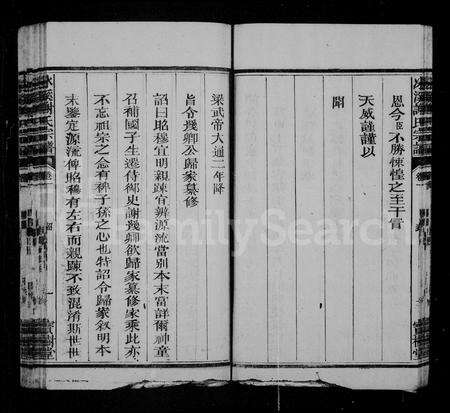 恩今臣不勝悚惶之至干冒
天威謹謹以
聞
梁武帝大通二年降
旨令幾卿公歸家纂修
詔曰昭穆宜明親疎宜辨源流當別本末當詳爾神童
召補國子生遷侍御史謝幾卿欲歸家纂修家乘此亦
不忘祖宗之念有裨子孫之心也特詔令歸家敘明本
末鑒定源流俾昭穆有左右而親疎不致混淆斯世世
寶樹堂
FamilySearch